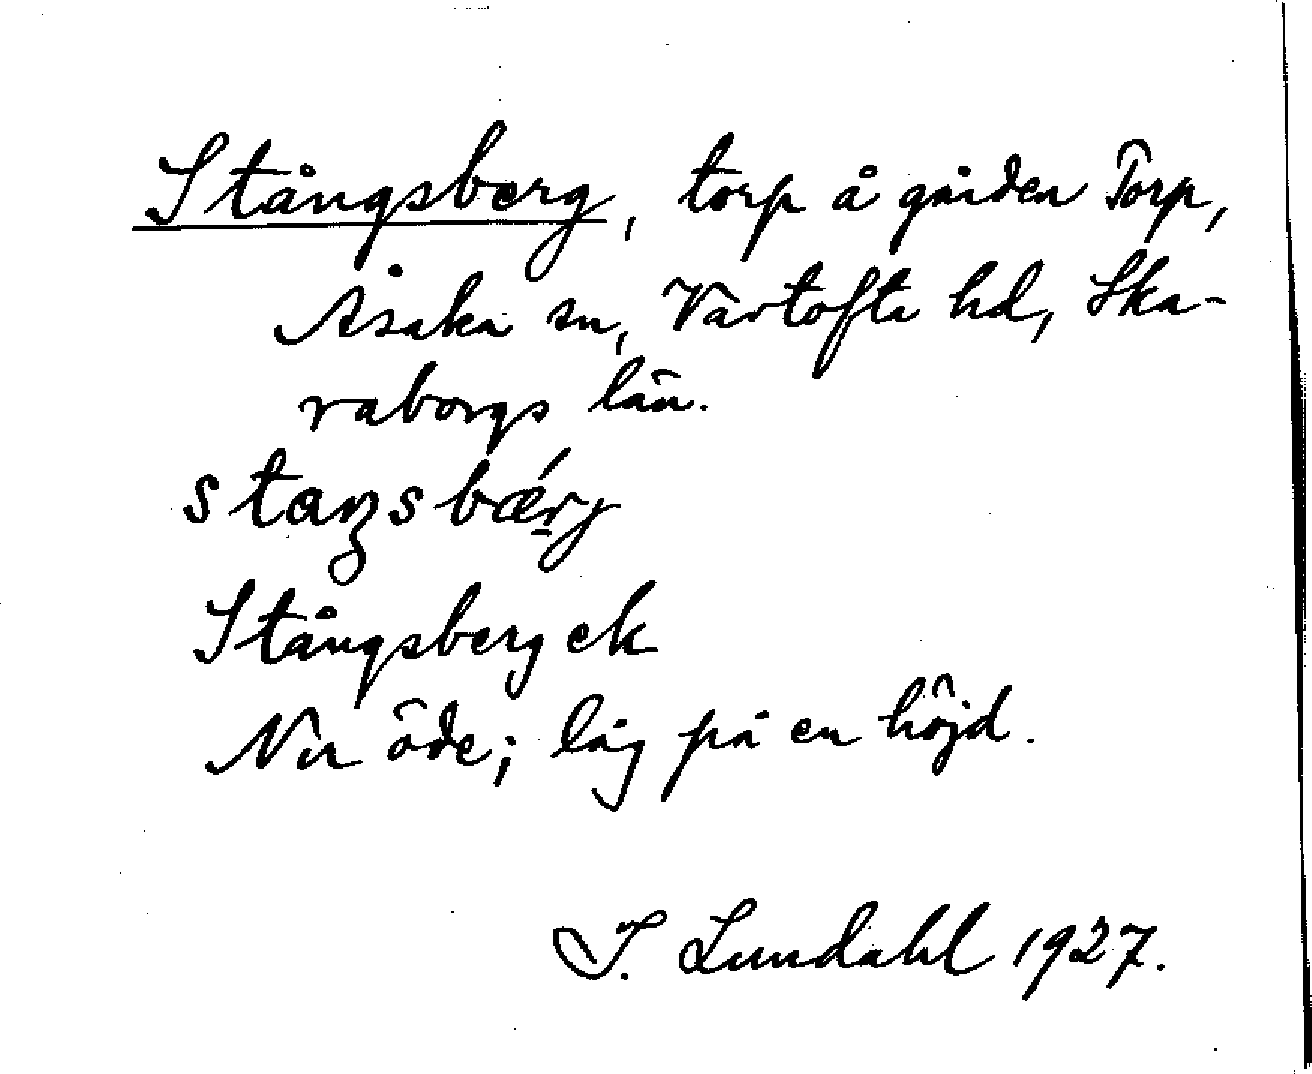 Stångsberg, torp å gården Torp,
Åsaka sn, Vartofta hd, Ska-
raborgs län.
staŋsbǽr̠j
Stångsberg ek
Nu öde; låg på en höjd.
I. Lundahl 1927.